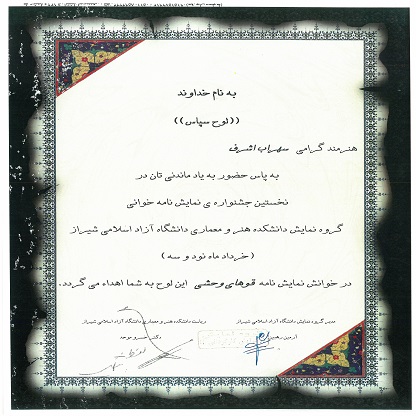 به نام خداوند
((لوح سپاس))
هنرمند گرامی سهراب اشرف
به پاس حضور به یاد ماندنی تان در
نخستین جشنواره ی نمایش نامه خوانی
گروه نمایش دانشکده هنر و معماری دانشگاه آزاد اسلامی شیراز
(خرداد ماه نود و سه)
در خوانش نمایش نامه قوهای وحشی این لوح به شما اهداء می گردد.
مدیر گروه نمایش دانشگاه آزاد اسلامی شیراز
آرمین
ریاست دانشکده هنر و معماری دانشگاه آزاد اسلامی شیراز
دکتر خسرو موحد